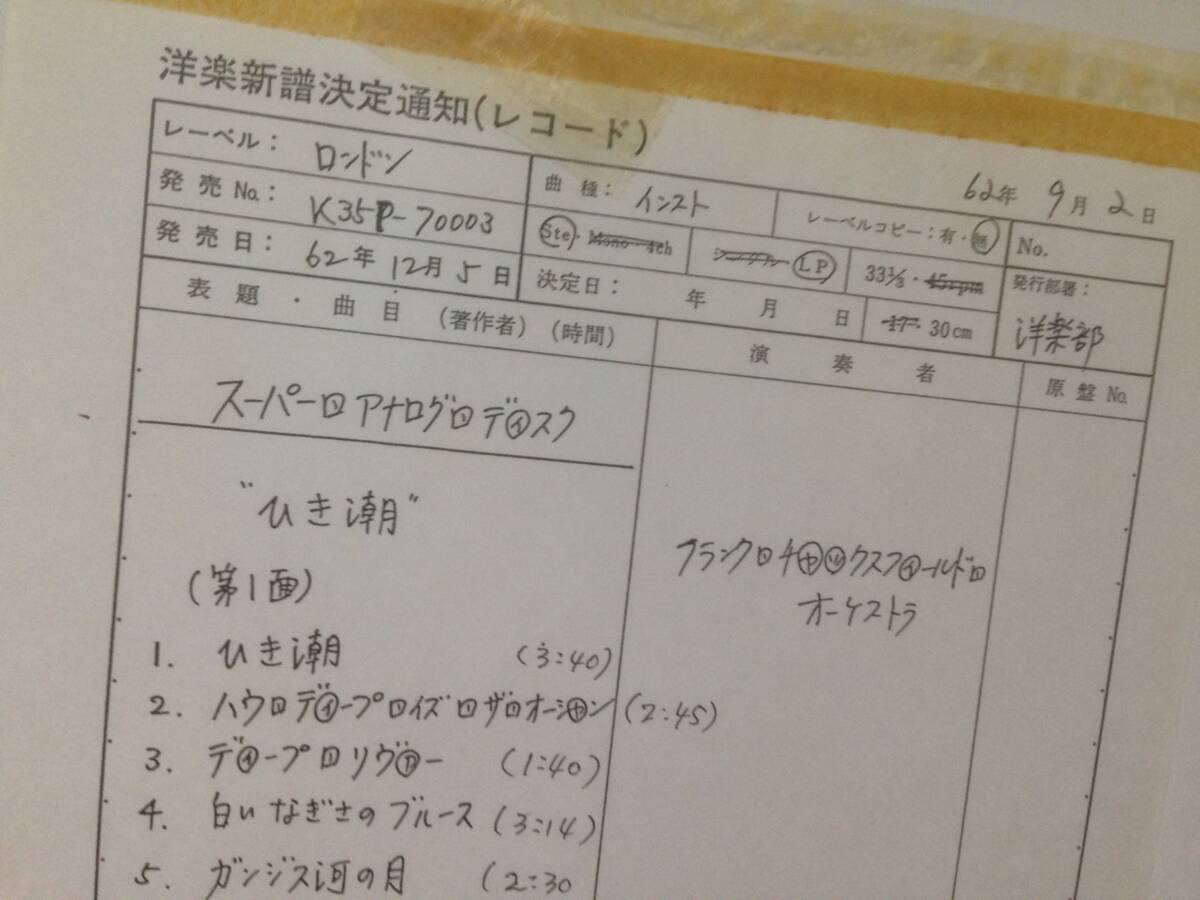 洋楽新譜決定通知(レコード)
62年 9月 2日
レーベル: ロンドン
曲種: インスト
レーベルコピー:有・無
No.
発売 No.: K35P-70003
Ste・Mono・4ch
シングル・LP
33⅓・45rpm
発行部署:
洋楽部
発売日: 62年 12月 5日
決定日: 年 月 日
17・30cm
表題・曲目 (著作者)(時間)
演奏者
原盤 No.
スーパー□アナログ□ディスク
"ひき潮"
フランク□チャックスフィールド□
オーケストラ
(第1面)
1. ひき潮 (3:40)
2. ハウ□ディープ□イズ□ザ□オーシャン (2:45)
3. ディープ□リヴァー (1:40)
4. 白いなぎさのブルース (3:14)
5. ガンジス河の月 (2:30